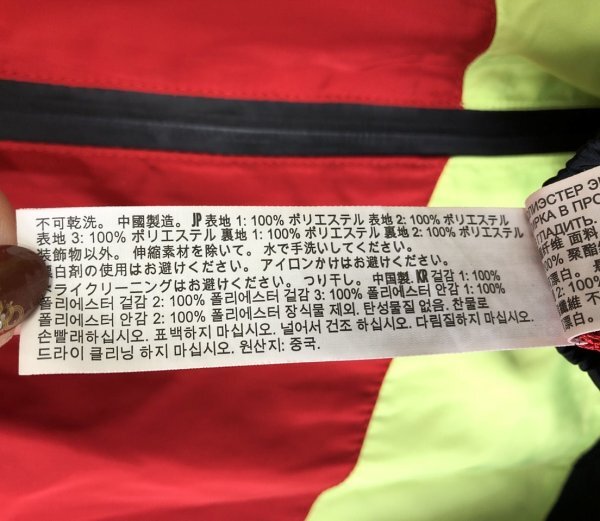 不可乾洗。 中國製造。 JP 表地 1: 100% ポリエステル 表地 2: 100% ポリエステル
表地 3: 100% ポリエステル 裏地 1: 100% ポリエステル 裏地 2: 100% ポリエステル
装飾物以外。 伸縮素材を除いて。 水で手洗いしてください。
漂白剤の使用はお避けください。 アイロンかけはお避けください。
ドライクリーニングはお避けください。 つり干し。 中国製. KR 겉감 1: 100%
폴리에스터 겉감 2: 100% 폴리에스터 겉감 3: 100% 폴리에스터 안감 1: 100%
폴리에스터 안감 2: 100% 폴리에스터 장식물 제외. 탄성물질 없음. 찬물로
손빨래하십시오. 표백하지 마십시오. 널어서 건조 하십시오. 다림질하지 마십시오.
드라이 클리닝 하지 마십시오. 원산지: 중국.
ЛИЭСТЕР
РКА В ПРО
ГЛАДИТЬ.
纤维 面料
100% 聚酯
漂白。
2: 100%
纤维
漂白。